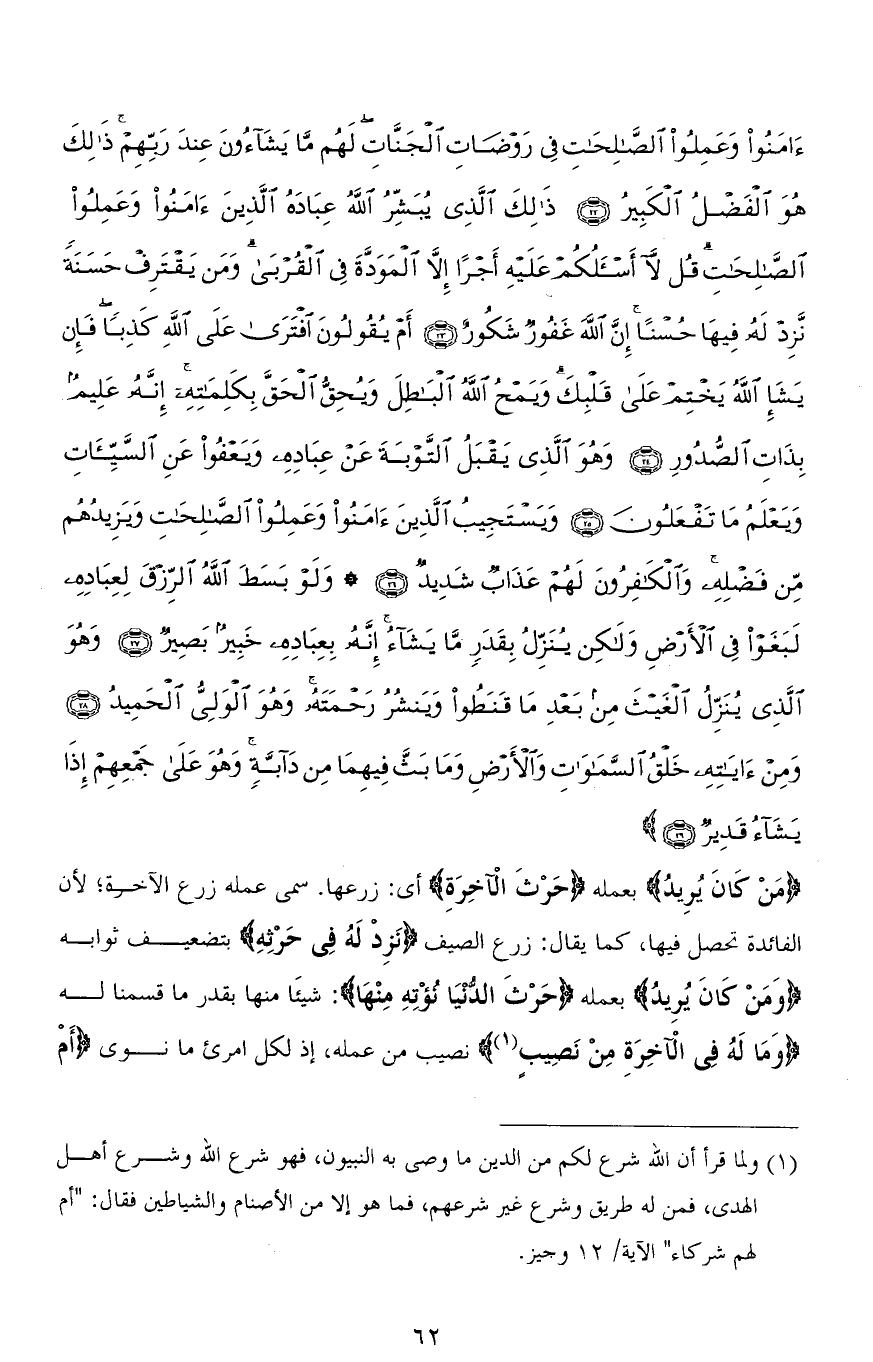 ءَامَنُوا۟ وَعَمِلُوا۟ ٱلصَّـٰلِحَـٰتِ فِى رَوْضَاتِ ٱلْجَنَّاتِ ۖ لَهُم مَّا يَشَآءُونَ عِندَ رَبِّهِمْ ۚ ذَٰلِكَ
هُوَ ٱلْفَضْلُ ٱلْكَبِيرُ ﴿٢٢﴾ ذَٰلِكَ ٱلَّذِى يُبَشِّرُ ٱللَّهُ عِبَادَهُ ٱلَّذِينَ ءَامَنُوا۟ وَعَمِلُوا۟
ٱلصَّـٰلِحَـٰتِ ۗ قُل لَّآ أَسْـَٔلُكُمْ عَلَيْهِ أَجْرًا إِلَّا ٱلْمَوَدَّةَ فِى ٱلْقُرْبَىٰ ۗ وَمَن يَقْتَرِفْ حَسَنَةً
نَّزِدْ لَهُۥ فِيهَا حُسْنًا ۚ إِنَّ ٱللَّهَ غَفُورٌ شَكُورٌ ﴿٢٣﴾ أَمْ يَقُولُونَ ٱفْتَرَىٰ عَلَى ٱللَّهِ كَذِبًا ۖ فَإِن
يَشَإِ ٱللَّهُ يَخْتِمْ عَلَىٰ قَلْبِكَ ۗ وَيَمْحُ ٱللَّهُ ٱلْبَـٰطِلَ وَيُحِقُّ ٱلْحَقَّ بِكَلِمَـٰتِهِۦٓ ۚ إِنَّهُۥ عَلِيمٌۢ
بِذَاتِ ٱلصُّدُورِ ﴿٢٤﴾ وَهُوَ ٱلَّذِى يَقْبَلُ ٱلتَّوْبَةَ عَنْ عِبَادِهِۦ وَيَعْفُوا۟ عَنِ ٱلسَّيِّـَٔاتِ
وَيَعْلَمُ مَا تَفْعَلُونَ ﴿٢٥﴾ وَيَسْتَجِيبُ ٱلَّذِينَ ءَامَنُوا۟ وَعَمِلُوا۟ ٱلصَّـٰلِحَـٰتِ وَيَزِيدُهُم
مِّن فَضْلِهِۦ ۚ وَٱلْكَـٰفِرُونَ لَهُمْ عَذَابٌ شَدِيدٌ ﴿٢٦﴾ * وَلَوْ بَسَطَ ٱللَّهُ ٱلرِّزْقَ لِعِبَادِهِۦ
لَبَغَوْا۟ فِى ٱلْأَرْضِ وَلَـٰكِن يُنَزِّلُ بِقَدَرٍ مَّا يَشَآءُ ۚ إِنَّهُۥ بِعِبَادِهِۦ خَبِيرٌۢ بَصِيرٌ ﴿٢٧﴾ وَهُوَ
ٱلَّذِى يُنَزِّلُ ٱلْغَيْثَ مِنۢ بَعْدِ مَا قَنَطُوا۟ وَيَنشُرُ رَحْمَتَهُۥ ۚ وَهُوَ ٱلْوَلِىُّ ٱلْحَمِيدُ ﴿٢٨﴾
وَمِنْ ءَايَـٰتِهِۦ خَلْقُ ٱلسَّمَـٰوَٰتِ وَٱلْأَرْضِ وَمَا بَثَّ فِيهِمَا مِن دَآبَّةٍ ۚ وَهُوَ عَلَىٰ جَمْعِهِمْ إِذَا
يَشَآءُ قَدِيرٌ ﴿٢٩﴾ ﴾
﴿مَنْ كَانَ يُرِيدُ﴾ بعمله ﴿حَرْثَ الْآخِرَةِ﴾ أى: زرعها. سمى عمله زرع الآخرة؛ لأن
الفائدة تحصل فيها، كما يقال: زرع الصيف ﴿نَزِدْ لَهُ فِى حَرْثِهِ﴾ بتضعيف ثوابه
﴿وَمَنْ كَانَ يُرِيدُ﴾ بعمله ﴿حَرْثَ الدُّنْيَا نُؤْتِهِ مِنْهَا﴾: شيئًا منها بقدر ما قسمنا له
﴿وَمَا لَهُ فِى الْآخِرَةِ مِنْ نَصِيبٍ(١)﴾ نصيب من عمله، إذ لكل امرئ ما نوى ﴿أَمْ
(١) ولما قرأ أن الله شرع لكم من الدين ما وصى به النبيون، فهو شرع الله وشرع أهل
الهدى، فمن له طريق وشرع غير شرعهم، فما هو إلا من الأصنام والشياطين فقال: "أم
لهم شركاء" الآية/ ١٢ وجيز.
٦٢